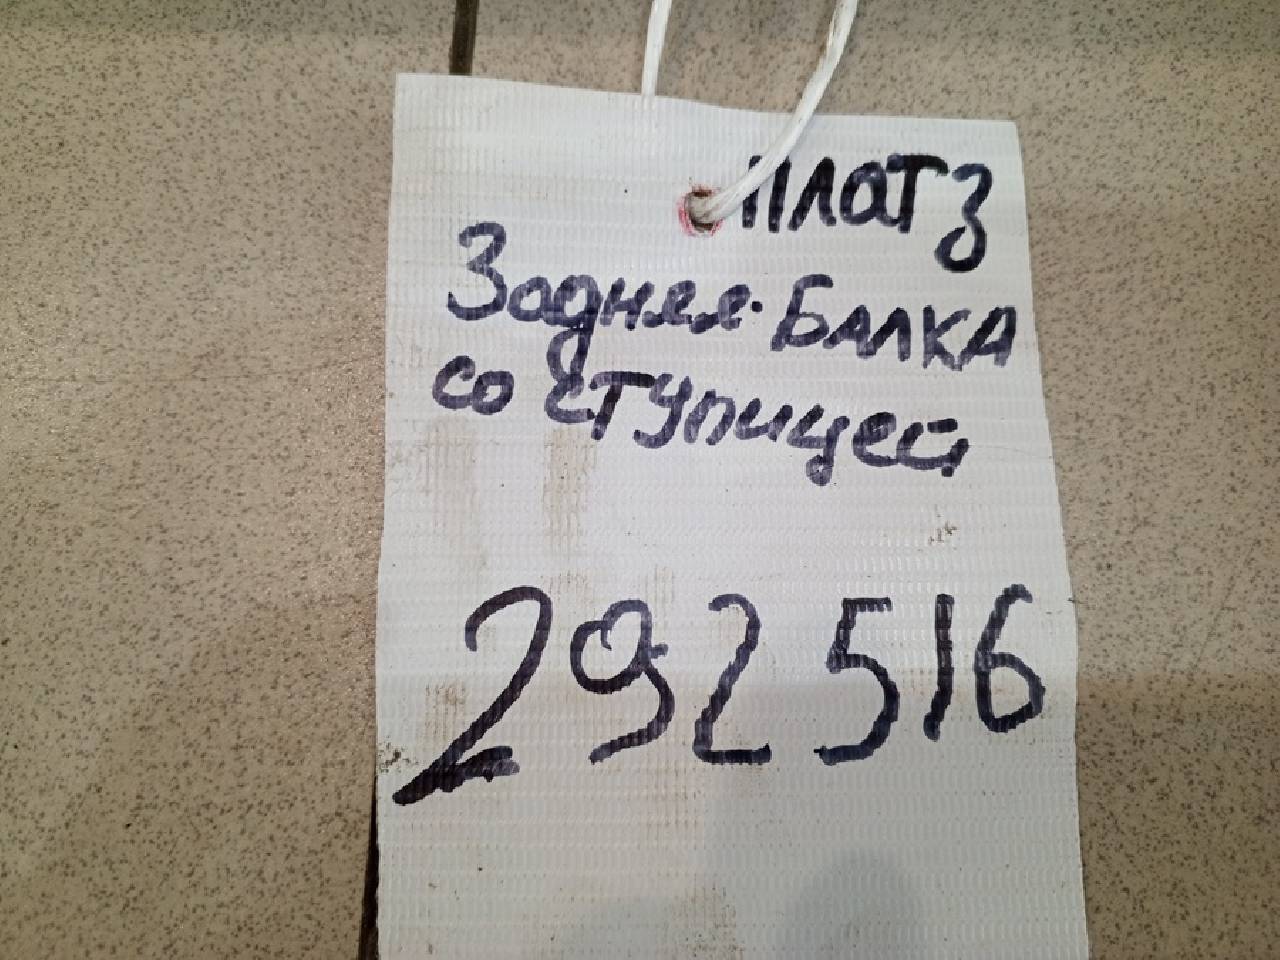 ПЛАТЗ
Задняя. БАЛКА
со ступицей
292516